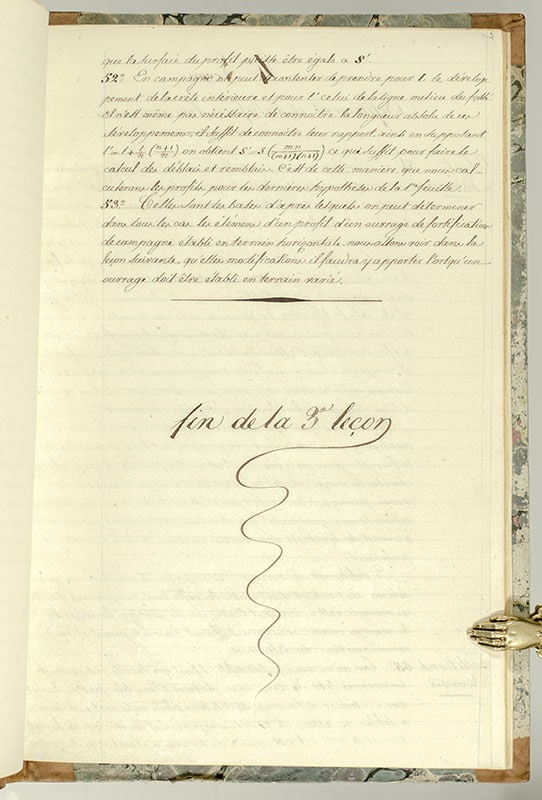 que la surface du profil puisse être égale a S'.
52° En campagne on peut se contenter de prendre pour l. le dévelop-
pement de la crête intérieure et pour l' celui de la ligne milieu du fossé
il n'est même pas nécéssaire de connoitre la longueur absolue de ces
développemens, il suffit de connoître leur rapport. ainsi en supposant
on obtient ce qui suffit pour faire le
calcul des déblais et remblais. C'est de cette manière que nous cal-
culerons les profils pour les dernières hypothèses de la 1re feuille.
53° Telles sont les bases d'après lesquels on peut déterminer
dans tous les cas les élémens d'un profil d'un ouvrage de fortification
de campagne établi en terrain horizontale. nous allons voir dans la
leçon suivante, qu'elles modifications il faudra y apporter lorsqu'un
ouvrage doit être établi en terrain varié.
fin de la 3e leçon